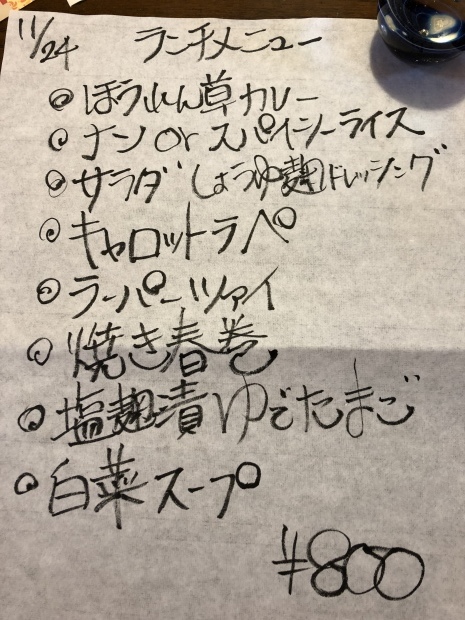 11/24 ランチメニュー
◎ ほうれん草カレー
◎ ナン or スパイシーライス
◎ サラダ しょうゆ麹ドレッシング
◎ キャロットラペ
◎ ラーパーツァイ
◎ 焼き春巻
◎ 塩麹漬ゆでたまご
◎ 白菜スープ
¥800